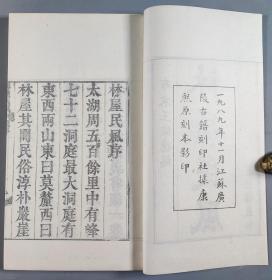 一九八九年十一月江蘇廣
陵古籍刻印社據康
熙原刻本影印
林屋民風序
太湖周五百餘里中有峰
七十二洞庭最大洞庭有
東西兩山東曰莫釐西曰
林屋其間民俗淳朴巖崖